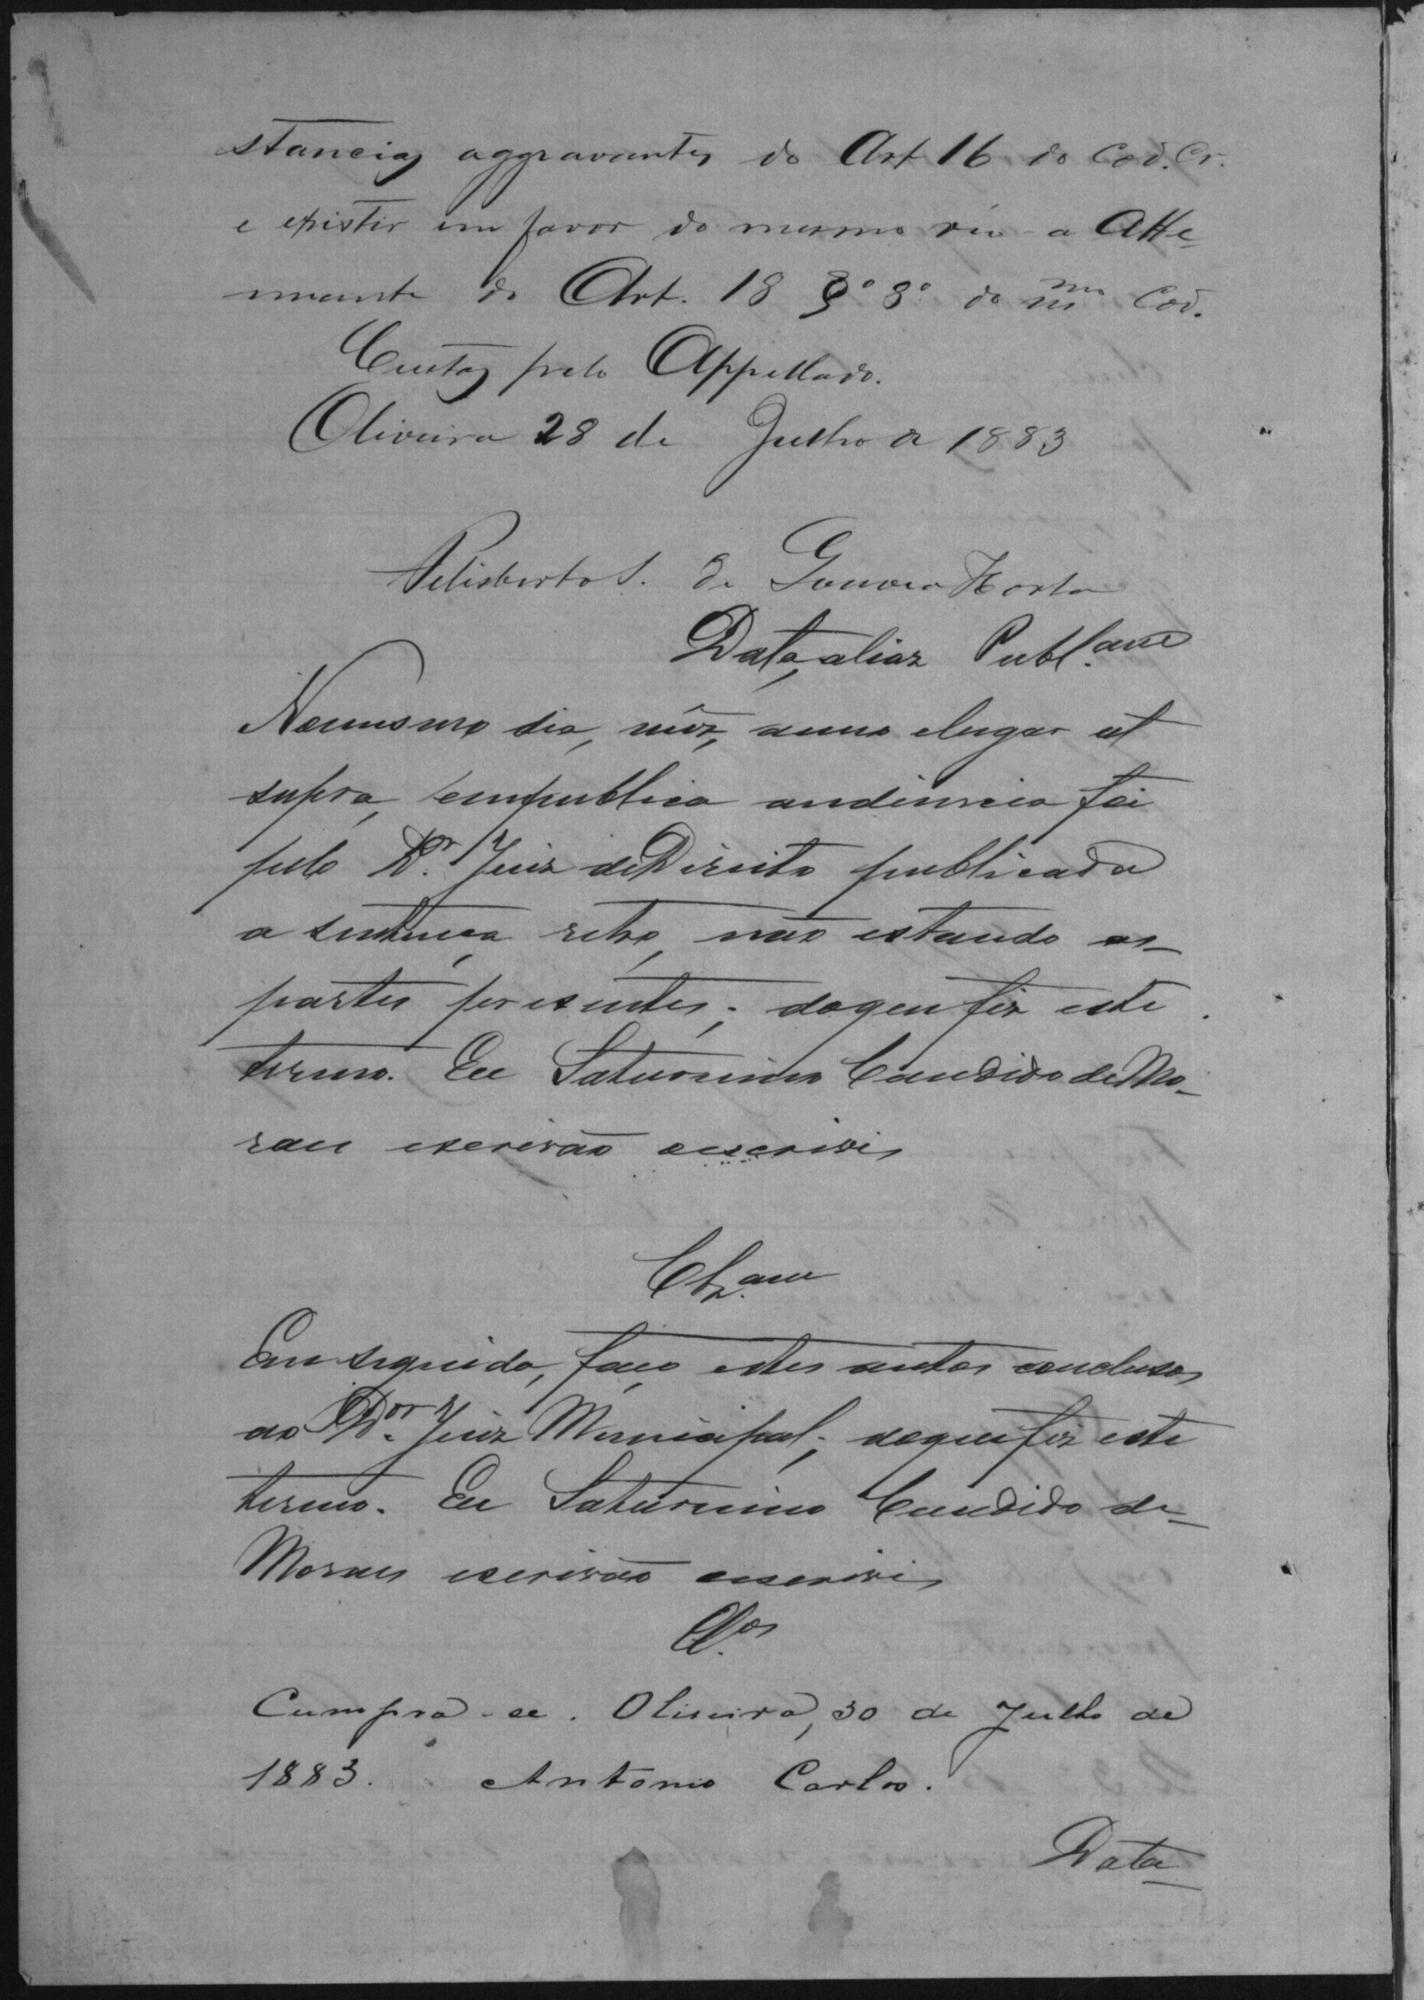 stancias aggravantes do Art 16 do Cod. Cr.
e existir em favor do mesmo réu a Atte-
nuante do Art. 18 § 8º do mmo Cod.
Custas pelo Appellado.
Oliveira 28 de Julho de 1883
Felisberto S. de Gouvea Horta
Data, alias Publ.am
No mesmo dia, mêz, anno e lugar ut
supra, em publica audiencia foi
pelo Dr. Juiz de Direito publicada
a sentença retro, não estando as
partes presentes; do que fiz este
termo. Eu Saturnino Candido de Mo-
raes escrivão escrivi
Clz.am
Em seguida, faço estes autos conclusos
ao Dor. Juiz Municipal; do que fiz este
termo. Eu Saturnino Candido de
Moraes escrivão escrivi
Cl.os
Cumpra-se. Oliveira, 30 de Julho de
1883. Antonio Carlos.
Data